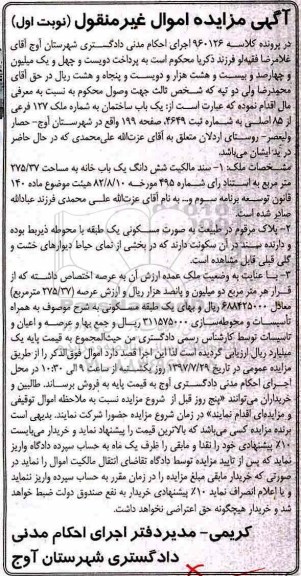 آگهی مزایده اموال غیرمنقول (نوبت اول)
در پرونده کلاسه ۹۶۰۱۲۶ اجرای احکام مدنی دادگستری شهرستان آوج آقای
غلامرضا فقیه‌لو فرزند ذکریا محکوم است به پرداخت دویست و چهل و یک میلیون
و چهارصد و بیست و هشت هزار و دویست و پنجاه و هشت ریال در حق آقای
محمدرضا ولی دو تپه که شخص ثالث جهت وصول محکوم به نسبت به معرفی
مال اقدام نموده که عبارت است از: یک باب ساختمان به شماره ملک ۱۲۷ فرعی
از ۸۵ اصلی به شماره ثبت ۴۶۴۹، صفحه ۱۹۹ واقع در شهرستان آوج- حصار
ولیعصر- روستای اردلان متعلق به آقای عزت‌الله علی‌محمدی که در حال حاضر
در ید ایشان می‌باشد.
مشخصات ملک: ۱- سند مالکیت شش دانگ یک باب خانه به مساحت ۲۷۵/۳۷
متر مربع به استناد رای شماره ۴۹۵ مورخه ۸۲/۸/۱۰ هیئت موضوع ماده ۱۴۰
قانون توسعه برنامه سوم و... به نام آقای عزت‌الله علی محمدی فرزند عبادالله
صادر شده است.
۲- پلاک مرقوم در طبیعت به صورت مسکونی یک طبقه با محوطه ذیربط بوده
و دارنده سند در آن سکونت دارند که در بخشی از نمای حیاط دیوارهای خشت و
گلی قبلی قابل مشاهده است.
۳- با عنایت به وضعیت ملک عمده ارزش آن به عرصه اختصاص داشته که از
قرار هر متر مربع دو میلیون و پانصد هزار ریال و ارزش عرصه (۲۷۵/۳۷ مترمربع)
معادل ۶۸۸۴۲۵۰۰۰ ریال و بهای یک طبقه مسکونی به شرح موصوف به همراه
تاسیسات و محوطه‌سازی ۳۱۱۵۷۵۰۰۰ ریال و جمع بها و عرصه و اعیان و
تاسیسات توسط کارشناس رسمی دادگستری من حیث‌المجموع به قیمت پایه یک
میلیارد ریال ارزیابی گردیده است لذا این اجرا قصد دارد اموال فوق‌الذکر را از طریق
مزایده عمومی در تاریخ ۱۳۹۷/۷/۲۹ روز یک‌شنبه از ساعت ۹ الی ۱۰:۳۰ در محل
اجرای احکام مدنی دادگستری آوج به قیمت پایه به فروش برساند. طالبین و
خریداران می‌توانند «پنج روز قبل از شروع مزایده نسبت به ملاحظه اموال توقیفی
و مزایده‌ای اقدام نمایند» در زمان شروع مزایده حضورا شرکت نمایند. بدیهی است
برنده مزایده کسی می‌باشد که بالاترین قیمت را پیشنهاد نماید و خریدار می‌بایست
۱۰٪ پیشنهادی خود را نقدا و مابقی را ظرف یک ماه به حساب سپرده دادگاه واریز
نماید که پس از تایید مزایده توسط دادگاه تقاضای انتقال مالکیت اموال را نماید در
صورتی که خریدار مابقی مبلغ مزایده را در زمان مقرر به حساب سپرده واریز ننماید
و یا اعلام انصراف نماید ۱۰٪ پیشنهادی خریدار به نفع صندوق دولت ضبط خواهد
شد و خریدار هیچگونه حق اعتراضی نخواهد داشت.
کریمی- مدیردفتر اجرای احکام مدنی
دادگستری شهرستان آوج